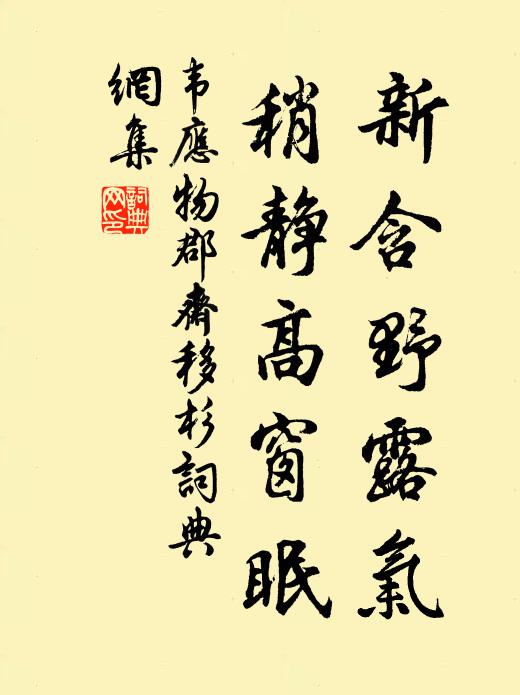 新含野露氣
稍靜高窗眠
韦應物郡齋移杉詞典
網集
詞典
网印